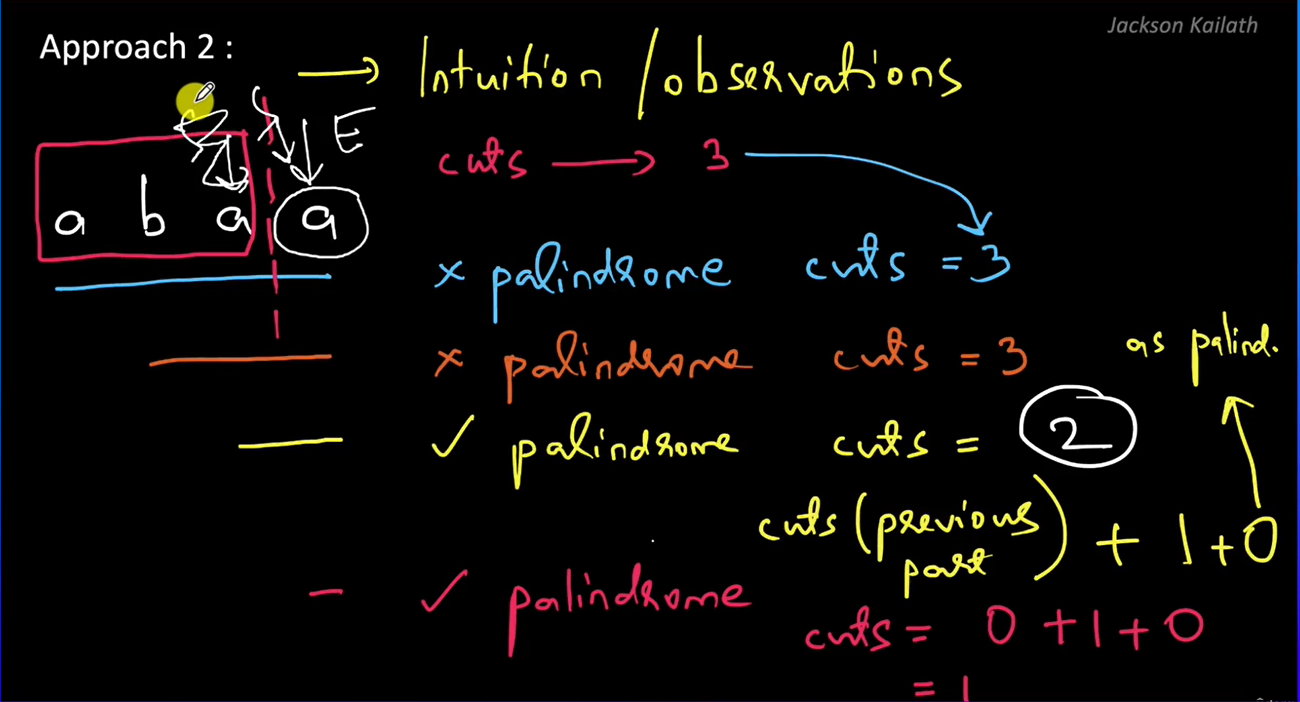 Jackson Kailath
Approach 2 :
→ Intuition / observations
E
cuts → 3
a b a a
x palindrome cuts = 3
x palindrome cuts = 3
as palind.
✓ palindrome cuts = 2
cuts (previous part) + 1 + 0
✓ palindrome
cuts = 0 + 1 + 0
= 1